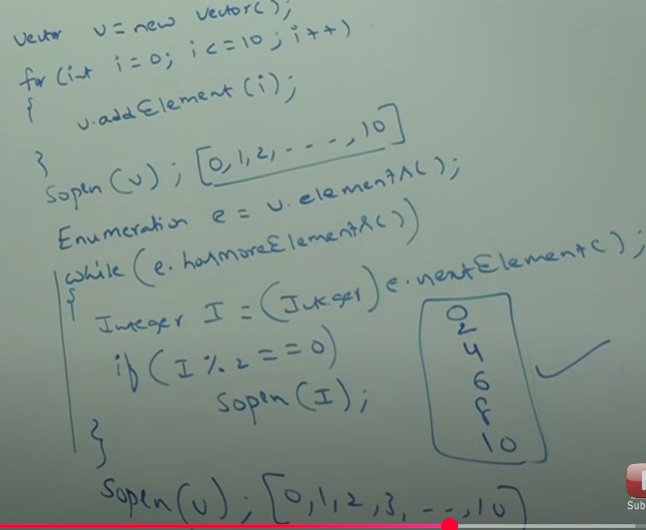 Vector v = new Vector();
for (int i = 0; i <= 10; i++)
{
v.addElement (i);
}
Sopln (v); [0, 1, 2, - - - -, 10]
Enumeration e = v.elements();
while (e.hasmoreElements())
{
Integer I = (Integer) e.nextElement();
if (I % 2 == 0)
Sopln (I);
}
0
2
4
6
8
10
Sopln (v); [0, 1, 2, 3, - - -, 10]
Sub